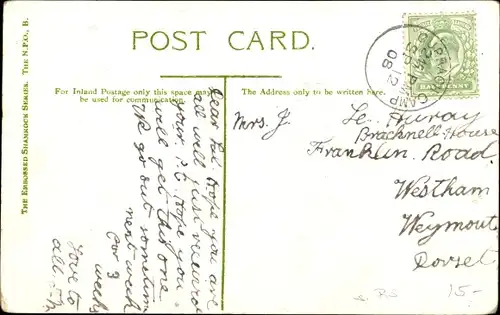 POST CARD.
For Inland Postage only this space may be used for communication.
The Address only to be written here.
THE EMBOSSED SHAMROCK SERIES. THE N.P.CO., B.
Dear Lil. Hope you are
all well. I just received
your P.C. hope you
will get this one
We go out sometime
next week
for 3
weeks
Love to
all
Mrs. J. Le Huray
Bracknell House
Franklin Road
Westham
Weymouth
Dorset
CAMP
08
HALFPENNY
15-